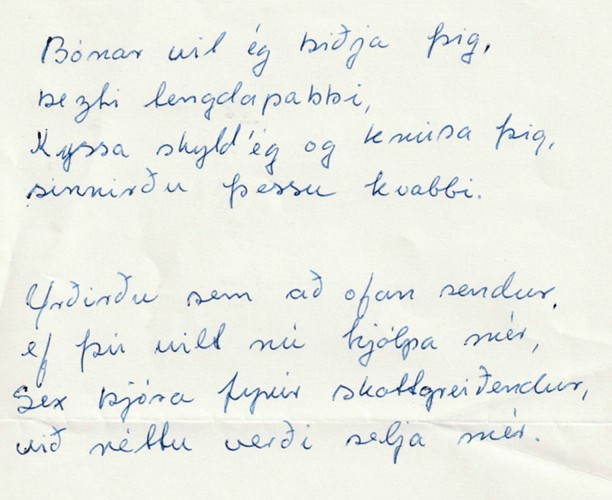 Bónar vil ég biðja þig,
bezti tengdapabbi,
Kyssa skyld'ég og knúsa þig,
sinnirðu þessu kvabbi.
Yrðirðu sem að ofan sendur,
ef þú vilt nú hjálpa mér,
Sex bjóra fyrir skattgreiðendur,
við réttu verði selja mér.